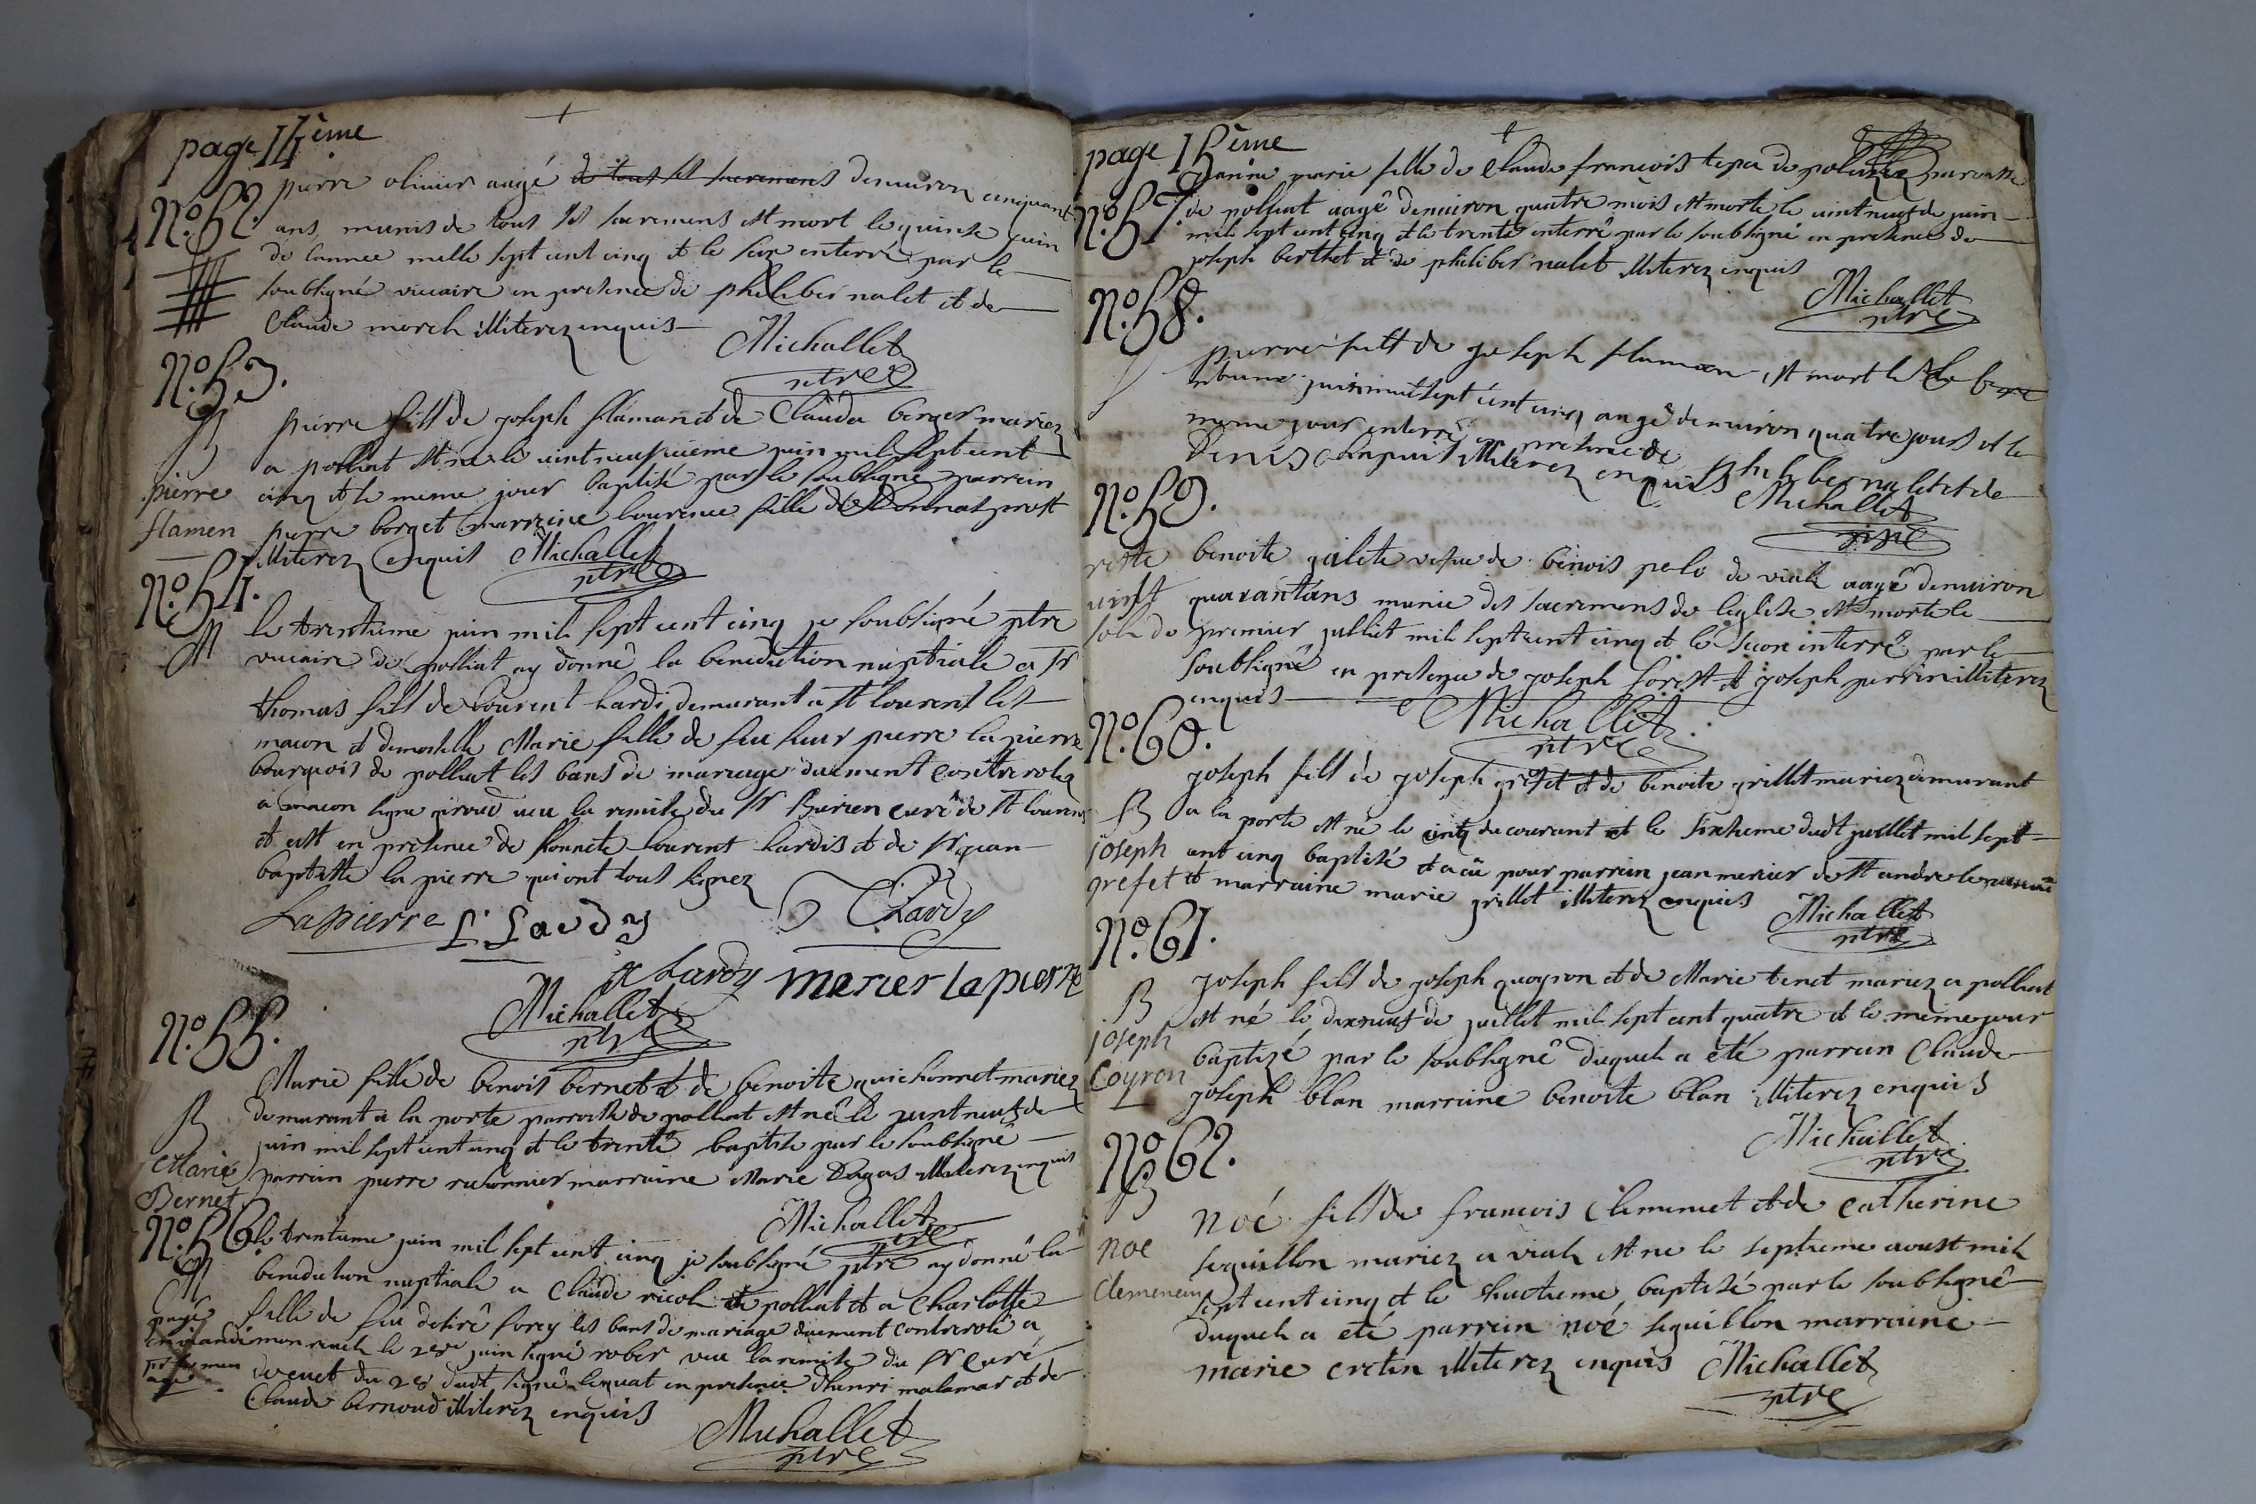 page 14ème
N.o 52.
pierre olivier aagé de tous les sacremens denuiron cinquant
ans munis de tous les sacremens est mort le quinse juin
de lannee mille sept cent cinq et le seze enterré par le
soubsigné vicaire en presence de philiber nalet et de
Claude morel illiterez enquis
Michallet
ptre
N.o 53.
B
pierre
flamen
pierre fils de joseph flaman et de Clauda berger mariez
a polliat est né le vint neufvieme juin mil sept cent
cinq et le meme jour baptisé par le soubsigné parrain
pierre borget marreine lourence fille de Donnat prost
illiterez enquis Michallet
ptre
N.o 54.
M
le trentieme juin mil sept cent cinq je soubsigné ptre
vicaire de polliat ay donné la benediction nuptiale a sr
thomas fils de Lourent hardi demurant a st lourent les
macon et demoiselle Marie fille de feu sieur pierre la pierre
bourgeois de polliat les bans de mariage duement contreroles
a macon signe giroud veu la remise du sr Burien curé de st lourens
et cest en présence de honnete lourent hardis et de sr jean
baptiste la pierre qui ont tous signez
Lapierre L Lardy THardy
Lardy marier lapierre
Michallet
ptre
N.o 55.
B
Marie
Bernet
Marie fille de benois bernet et de benoite guichonnet mariez
demurant a la porte parroisse de polliat est né le vint neuf de
juin mil sept cent cinq et le trente baptise par le soubsigné
parrain pierre ratonnier marraine Marie Dagas illiterez enquis
Michallet
ptre
N.o 56.
M
le trentieme juin mil sept cent cinq je soubsigné ptre ay donné la
benediction nuptiale a Claude nicol de polliat et a Charlotte
fille de feu desiré forey les bans de mariage duement controrolé a
le 28e juin signé rober veu la remise du sr curé
du 28 dudt signé en presence dhenri malamar et de
Claude bernoud illiterez enquis
Michallet
ptre
page 15ème
N.o 57.
janne marie fille de Claude francois tepa de parroisse
de polliat aagé denuiron quatre mois est morte le vint neuf de juin
mil sept cent cinq et le trente enterré par le soubsigné en presence de
joseph berthet et de philiber nalet illiterez enquis
Michallet
ptre
N.o 58.
pierre fils de joseph flaman est mort le
juin mil sept cent cinq aagé denuiron quatre jours et le
meme jour enterré en presence de philiber nalet et de
Denis illiterez enquis
Michallet
ptre
N.o 59.
reste
vint
sols de
benoite galete vefue de benois pelo de viale aagé denuiron
quarantans munie des sacremens de leglise est morte le
premier julliet mil sept cent cinq et le second enterré par le
soubsigné en presence de joseph forest et joseph perrin illiterez
enquis
Michallet
ptre
N.o 60.
B
joseph
grefet
joseph fils de joseph grefet et de benoite grillet mariez demurant
a la porte est né le cinq du courant et le sixtieme dudt juillet mil sept
cent cinq baptisé et a eu pour parrain jean merier de st andre le
et marraine marie grillet illiterez enquis
Michallet
ptre
N.o 61.
B
joseph
Coyron
joseph fils de joseph quoyron et de Marie tenet mariez a polliat
est né le dixneuf de juillet mil sept cent quatre et le meme jour
baptizé par le soubsigné duquel a eté parrain Claude
joseph blan marraine benoite blan illiterez enquis
Michallet
ptre
N.o 62.
B
noe
Clemencin
noé fils de francois Clemencet et de Catherine
seguillon mariez a viale est ne le septieme aoust mil
sept cent cinq et le huitieme baptisé par le soubsigné
duquel a eté parrain noé seguillon marraine
marie cretin illiterez enquis Michallet
ptre